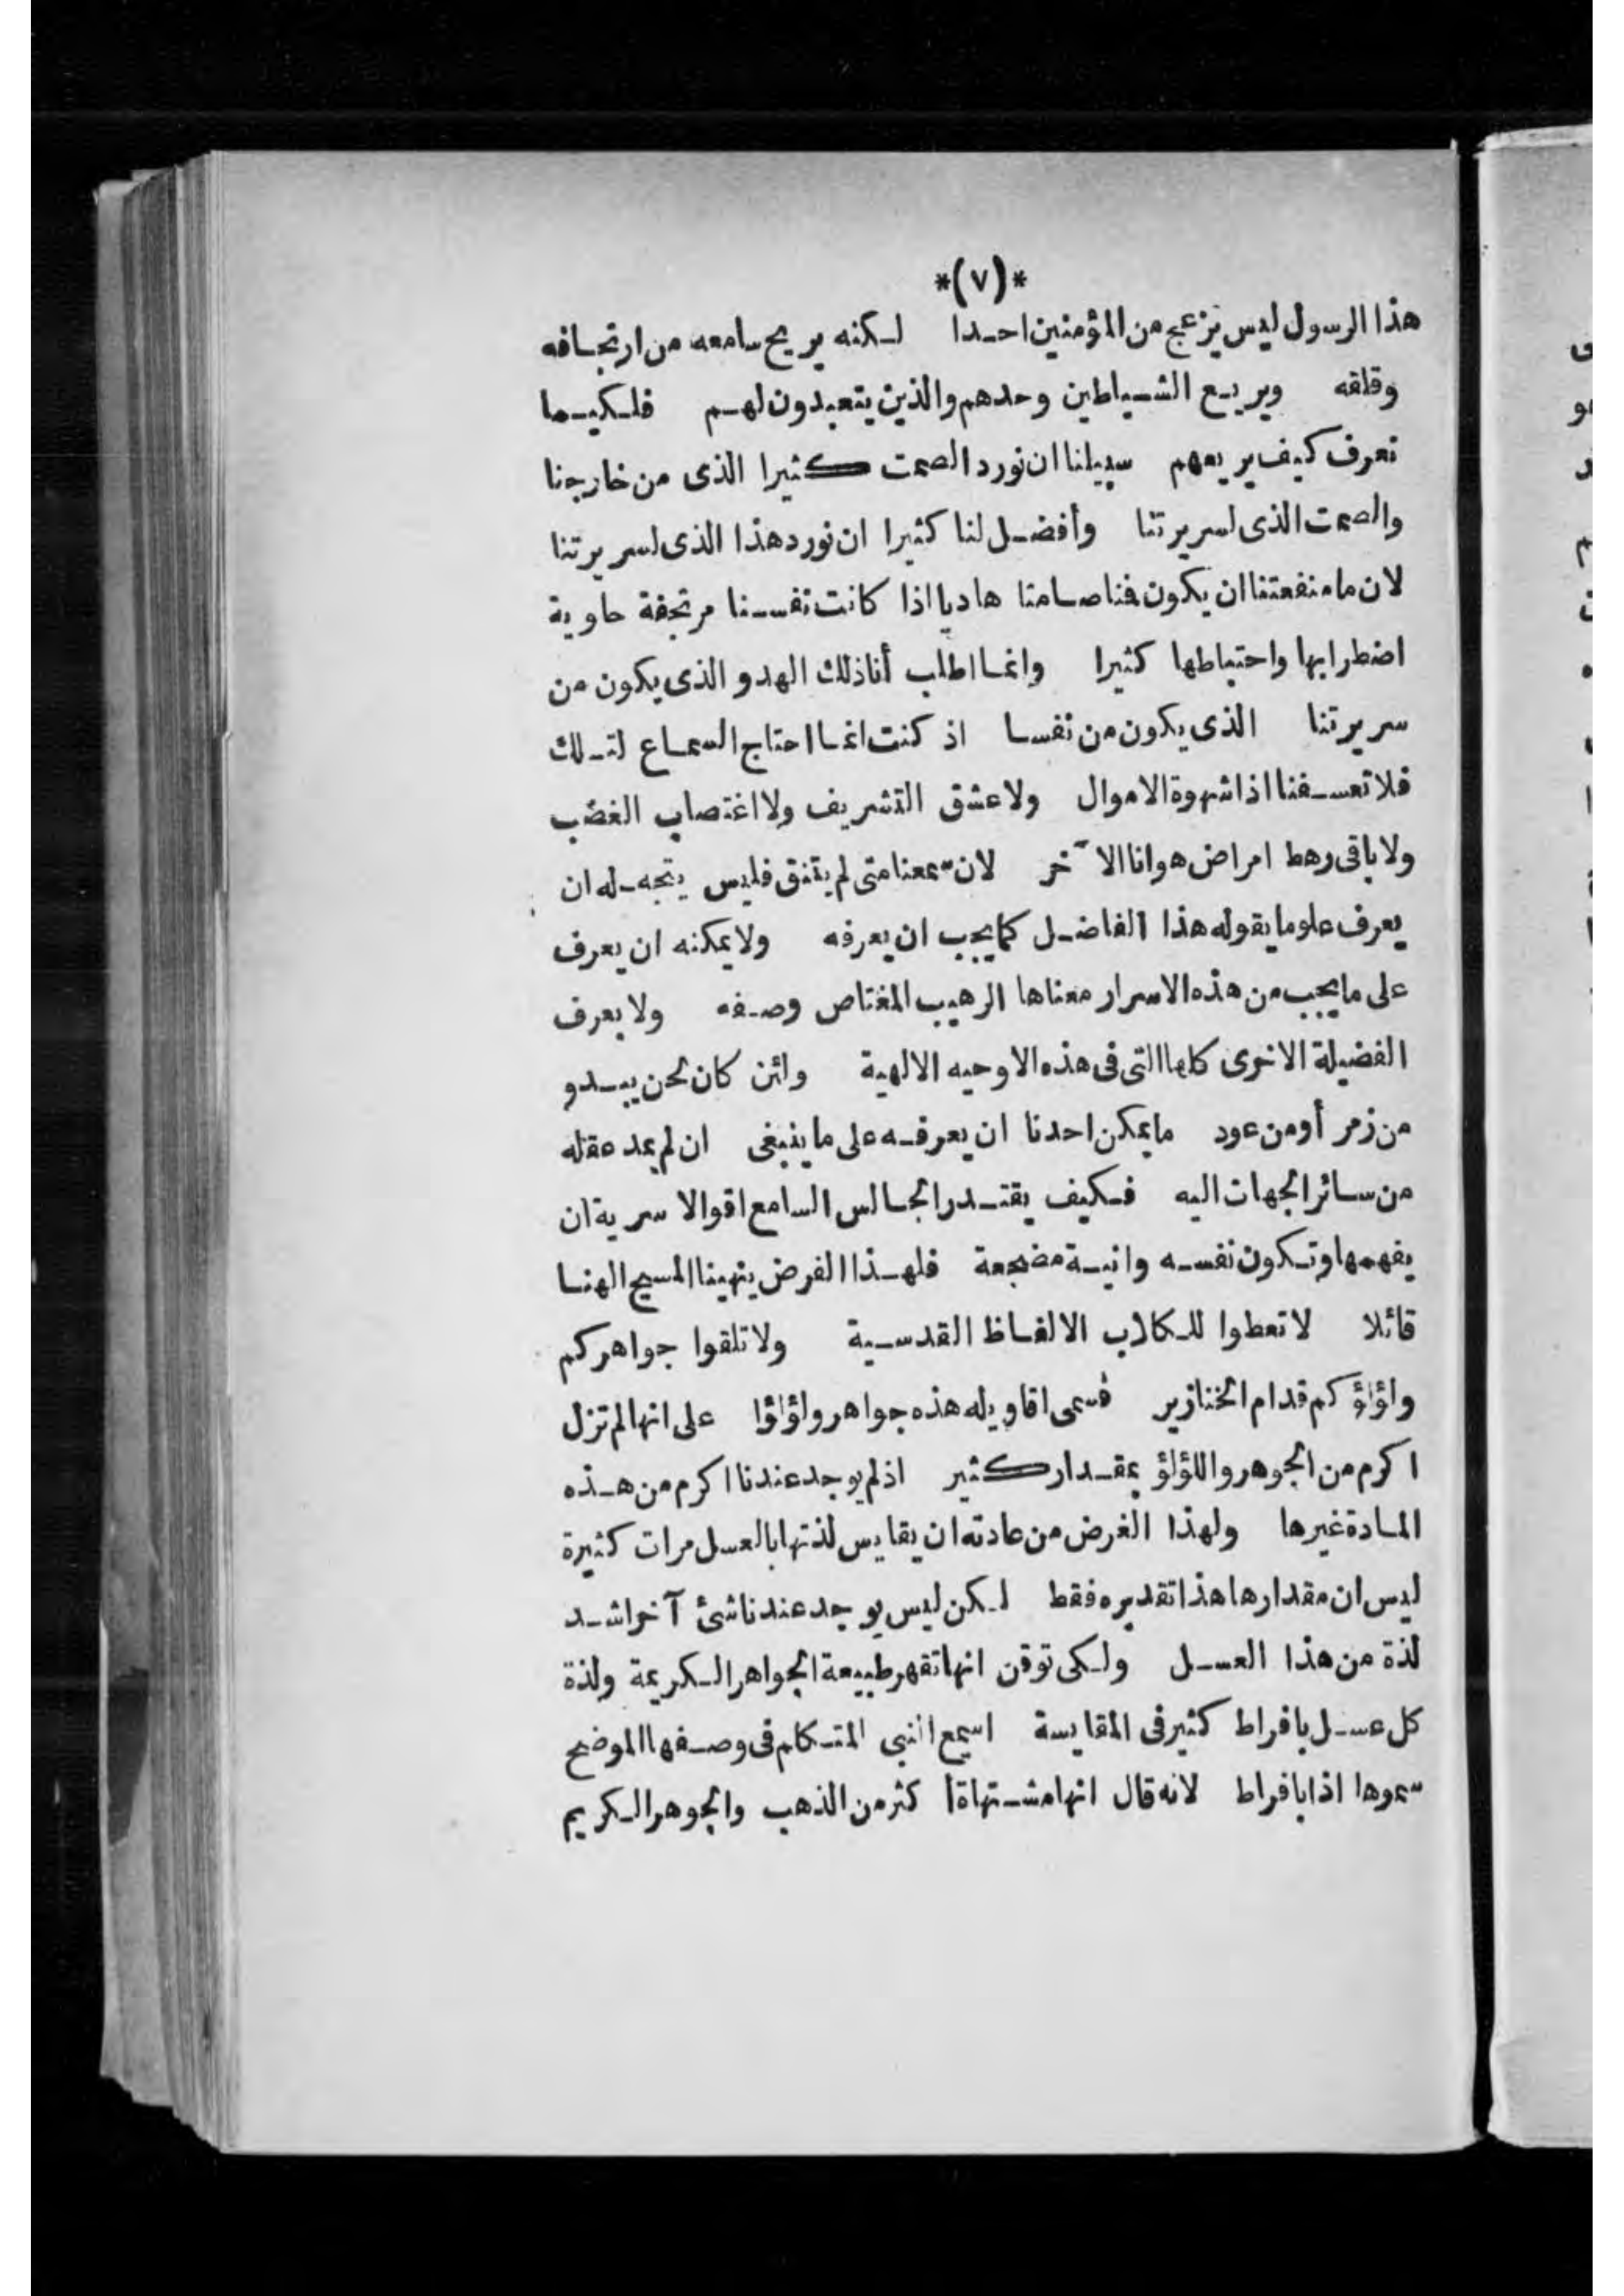 *(٧)*
هذا الرسول ليس يزعج من المؤمنين احدا لكنه يريح سامعه من ارتجافه
وقلقه ويريع الشياطين وحدهم والذين يتعبدون لهم فلكيما
نعرف كيف يريعهم سبيلنا ان نورد الصمت كثيرا الذى من خارجنا
والصمت الذى لسريرتنا وأفضل لنا كثيرا ان نورد هذا الذى لسريرتنا
لان ما منفعتنا ان يكون فنا صامتا هاديا اذا كانت نفسنا مرتجفة حاوية
اضطرابها واحتباطها كثيرا وانما اطلب أنا ذلك الهدو الذى يكون من
سريرتنا الذى يكون من نفسا اذ كنت انما احتاج السماع لتلك
فلا تعسفنا اذا شهوة الاموال ولا عشق التشريف ولا اغتصاب الغضب
ولا باقى رهط امراض هوانا الآخر لان سمعنا متى لم يتنق فليس يتجه له ان
يعرف علو ما يقوله هذا الفاضل كما يجب ان يعرفه ولا يمكنه ان يعرف
على ما يجب من هذه الاسرار معناها الرهيب المغتاص وصفه ولا يعرف
الفضيلة الاخرى كلها التى فى هذه الاوحيه الالهية ولئن كان لحن يبدو
من زمر أو من عود ما يمكن احدنا ان يعرفه على ما ينبغى ان لم يمد عقله
من سائر الجهات اليه فكيف يقتدر الجالس السامع اقوالا سرية ان
يفهمها وتكون نفسه وانية مضجعة فلهذا الغرض ينهينا المسيح الهنا
قائلا لا تعطوا للكلاب الالفاظ القدسية ولا تلقوا جواهركم
ولؤلؤكم قدام الخنازير فسمى اقاويله هذه جواهر ولؤلؤا على انها لم تزل
اكرم من الجوهر واللؤلؤ بمقدار كثير اذ لم يوجد عندنا اكرم من هذه
المادة غيرها ولهذا الغرض من عادته ان يقايس لذتها بالعسل مرات كثيرة
ليس ان مقدارها هذا تقديره فقط لكن ليس يوجد عندنا شئ آخر اشد
لذة من هذا العسل ولكى توقن انها تقهر طبيعة الجواهر الكريمة ولذة
كل عسل بافراط كثير فى المقايسة اسمع النبى المتكلم فى وصفها الموضح
سموها اذا بافراط لانه قال انها مشتهاة أكثر من الذهب والجوهر الكريم